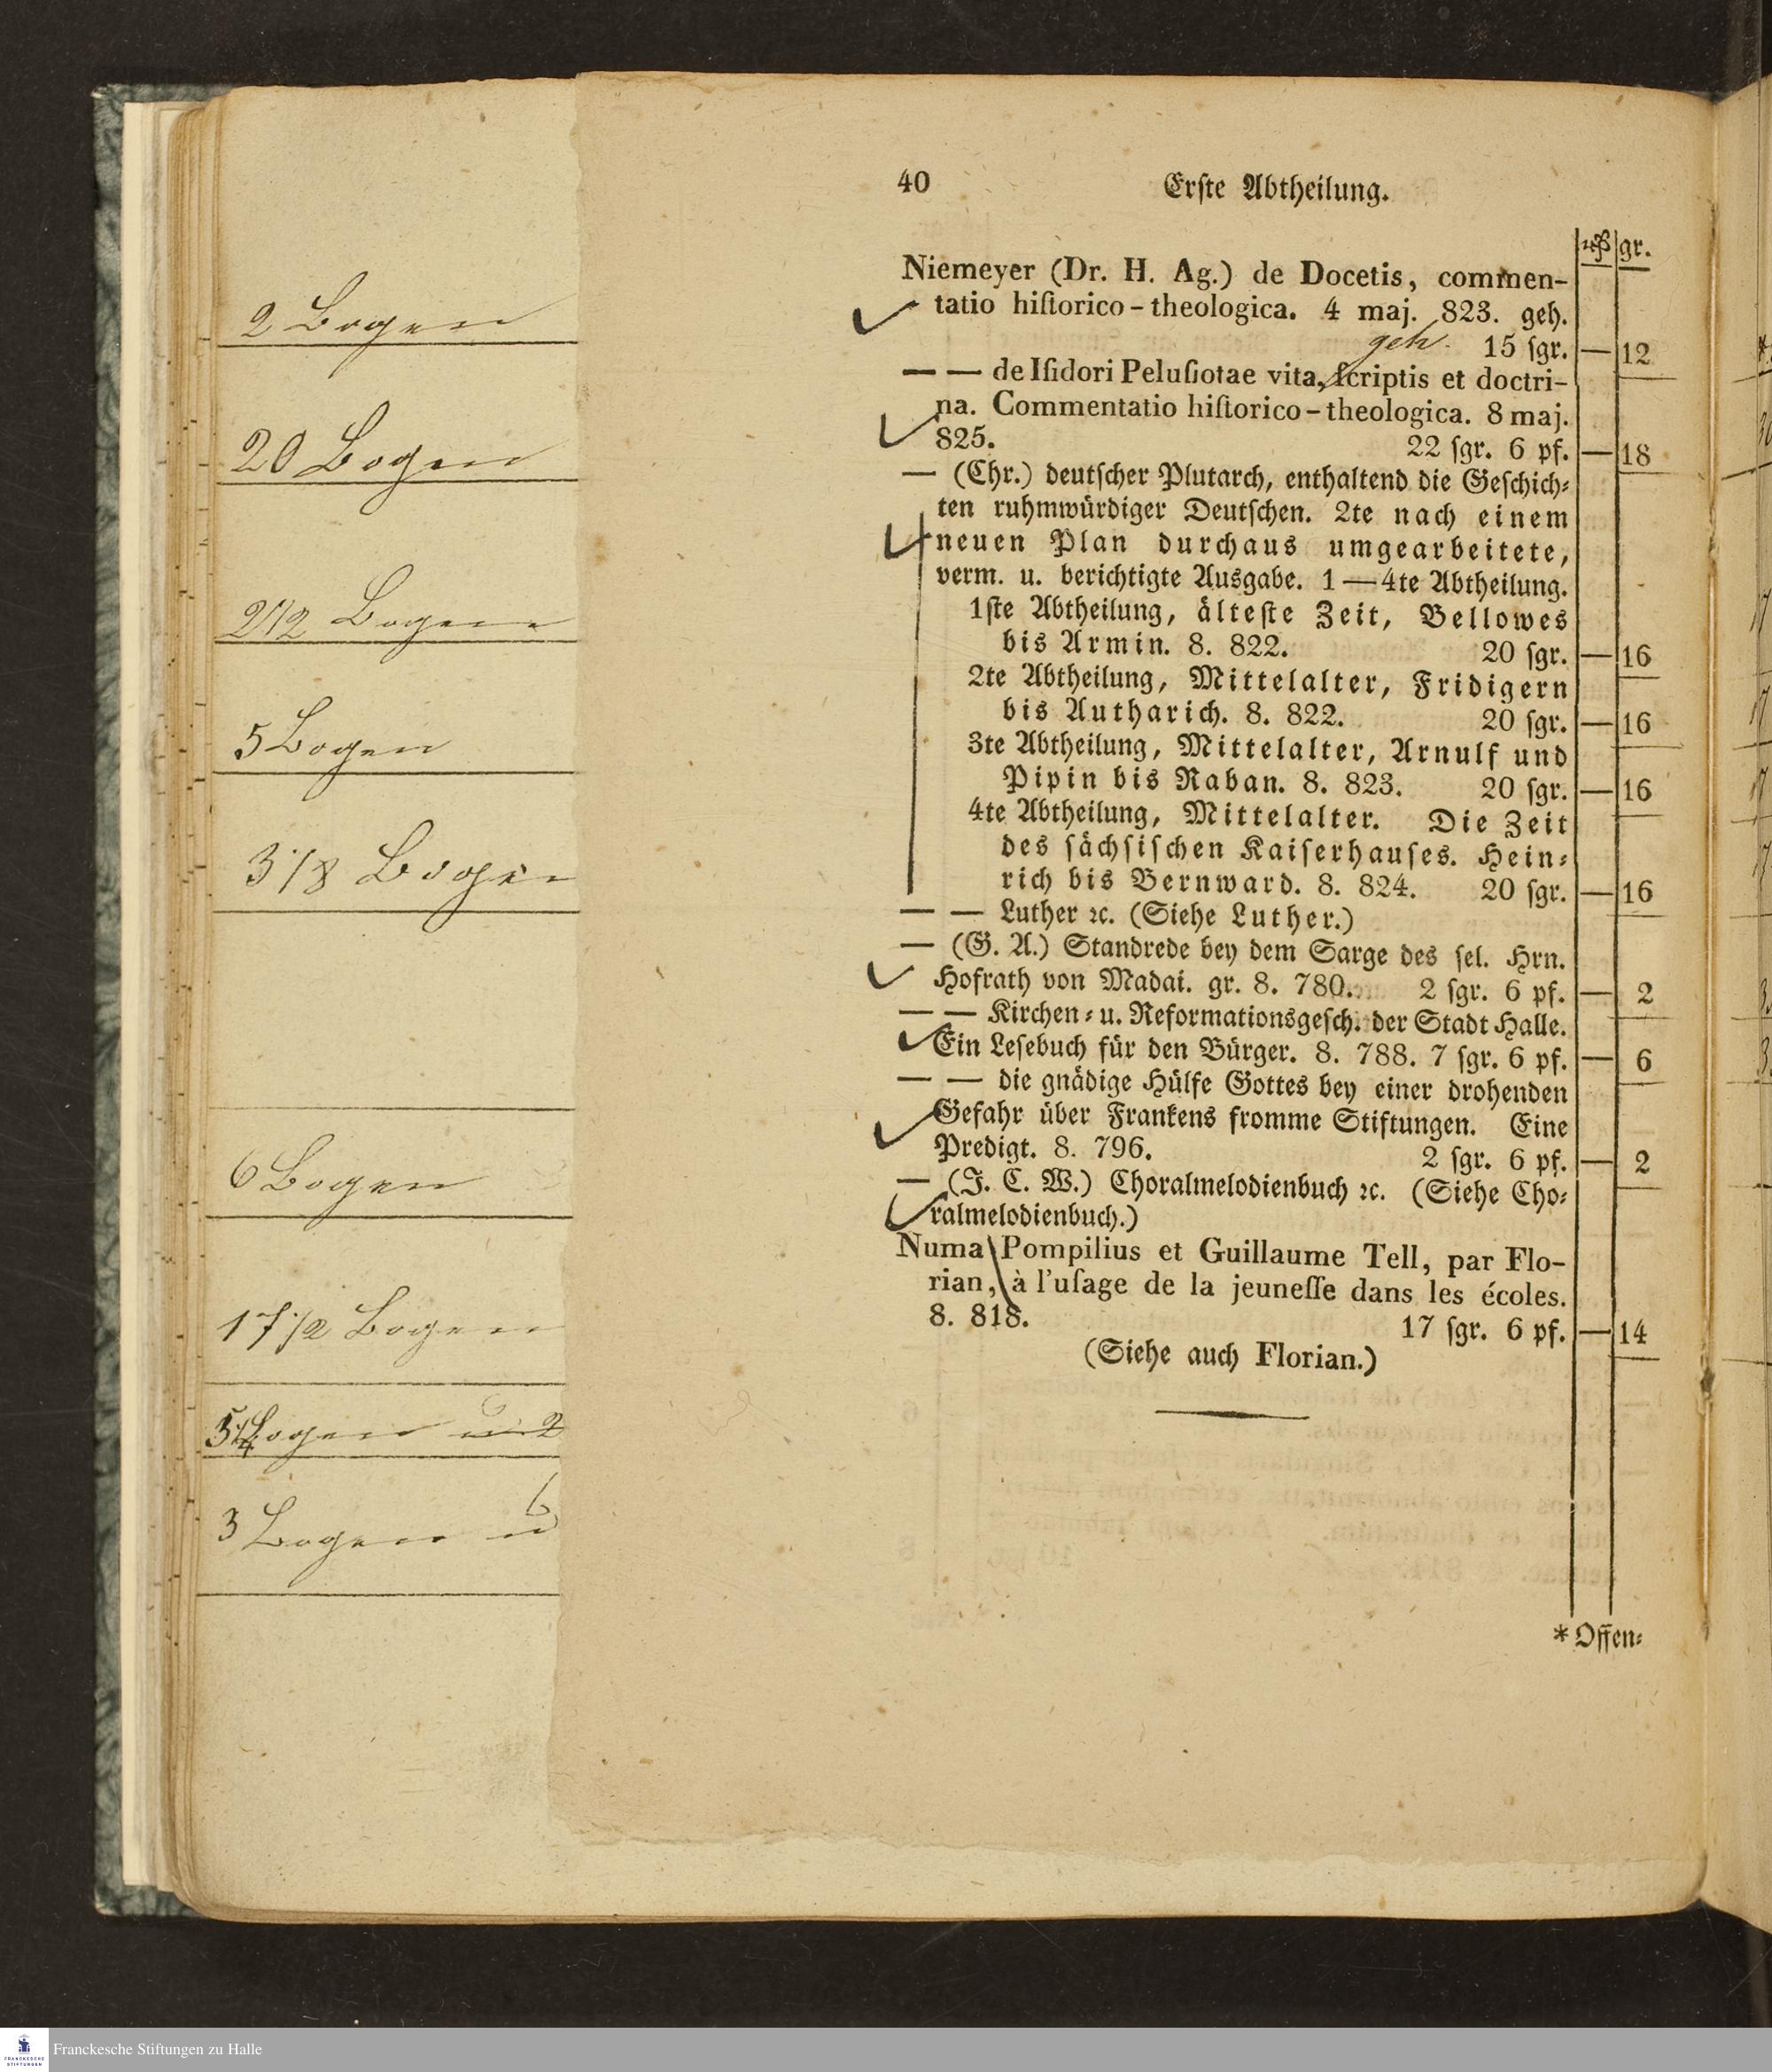 2 Bogen
20 Bogen
2 1/2 Bogen
5 Bogen
3 1/8 Bogen
6 Bogen
17 1/2 Bogen
Bogen
3 Bogen u
40 Erſte Abtheilung.
gr.
Niemeyer (Dr. H. Ag.) de Docetis, commen-
tatio hiſtorico-theologica. 4 maj. 823. geh.
geh. 15 ſgr. — 12
— — de Iſidori Peluſiotae vita, ſcriptis et doctri-
na. Commentatio hiſtorico-theologica. 8 maj.
825. 22 ſgr. 6 pf. — 18
— (Chr.) deutſcher Plutarch, enthaltend die Geſchich-
ten ruhmwürdiger Deutſchen. 2te nach einem
neuen Plan durchaus umgearbeitete,
verm. u. berichtigte Ausgabe. 1—4te Abtheilung.
1ſte Abtheilung, älteſte Zeit, Bellowes
bis Armin. 8. 822. 20 ſgr. — 16
2te Abtheilung, Mittelalter, Fridigern
bis Autharich. 8. 822. 20 ſgr. — 16
3te Abtheilung, Mittelalter, Arnulf und
Pipin bis Raban. 8. 823. 20 ſgr. — 16
4te Abtheilung, Mittelalter. Die Zeit
des ſächſiſchen Kaiſerhauſes. Hein-
rich bis Bernward. 8. 824. 20 ſgr. — 16
— — Luther ꝛc. (Siehe Luther.)
— (G. A.) Standrede bey dem Sarge des ſel. Hrn.
Hofrath von Madai. gr. 8. 780. 2 ſgr. 6 pf. — 2
— — Kirchen- u. Reformationsgeſch. der Stadt Halle.
Ein Leſebuch für den Bürger. 8. 788. 7 ſgr. 6 pf. — 6
— — die gnädige Hülfe Gottes bey einer drohenden
Gefahr über Frankens fromme Stiftungen. Eine
Predigt. 8. 796. 2 ſgr. 6 pf. — 2
— (J. C. W.) Choralmelodienbuch ꝛc. (Siehe Cho-
ralmelodienbuch.)
Numa Pompilius et Guillaume Tell, par Flo-
rian, à l'uſage de la jeuneſſe dans les écoles.
8. 818. 17 ſgr. 6 pf. — 14
(Siehe auch Florian.)
* Offen-
Franckesche Stiftungen zu Halle